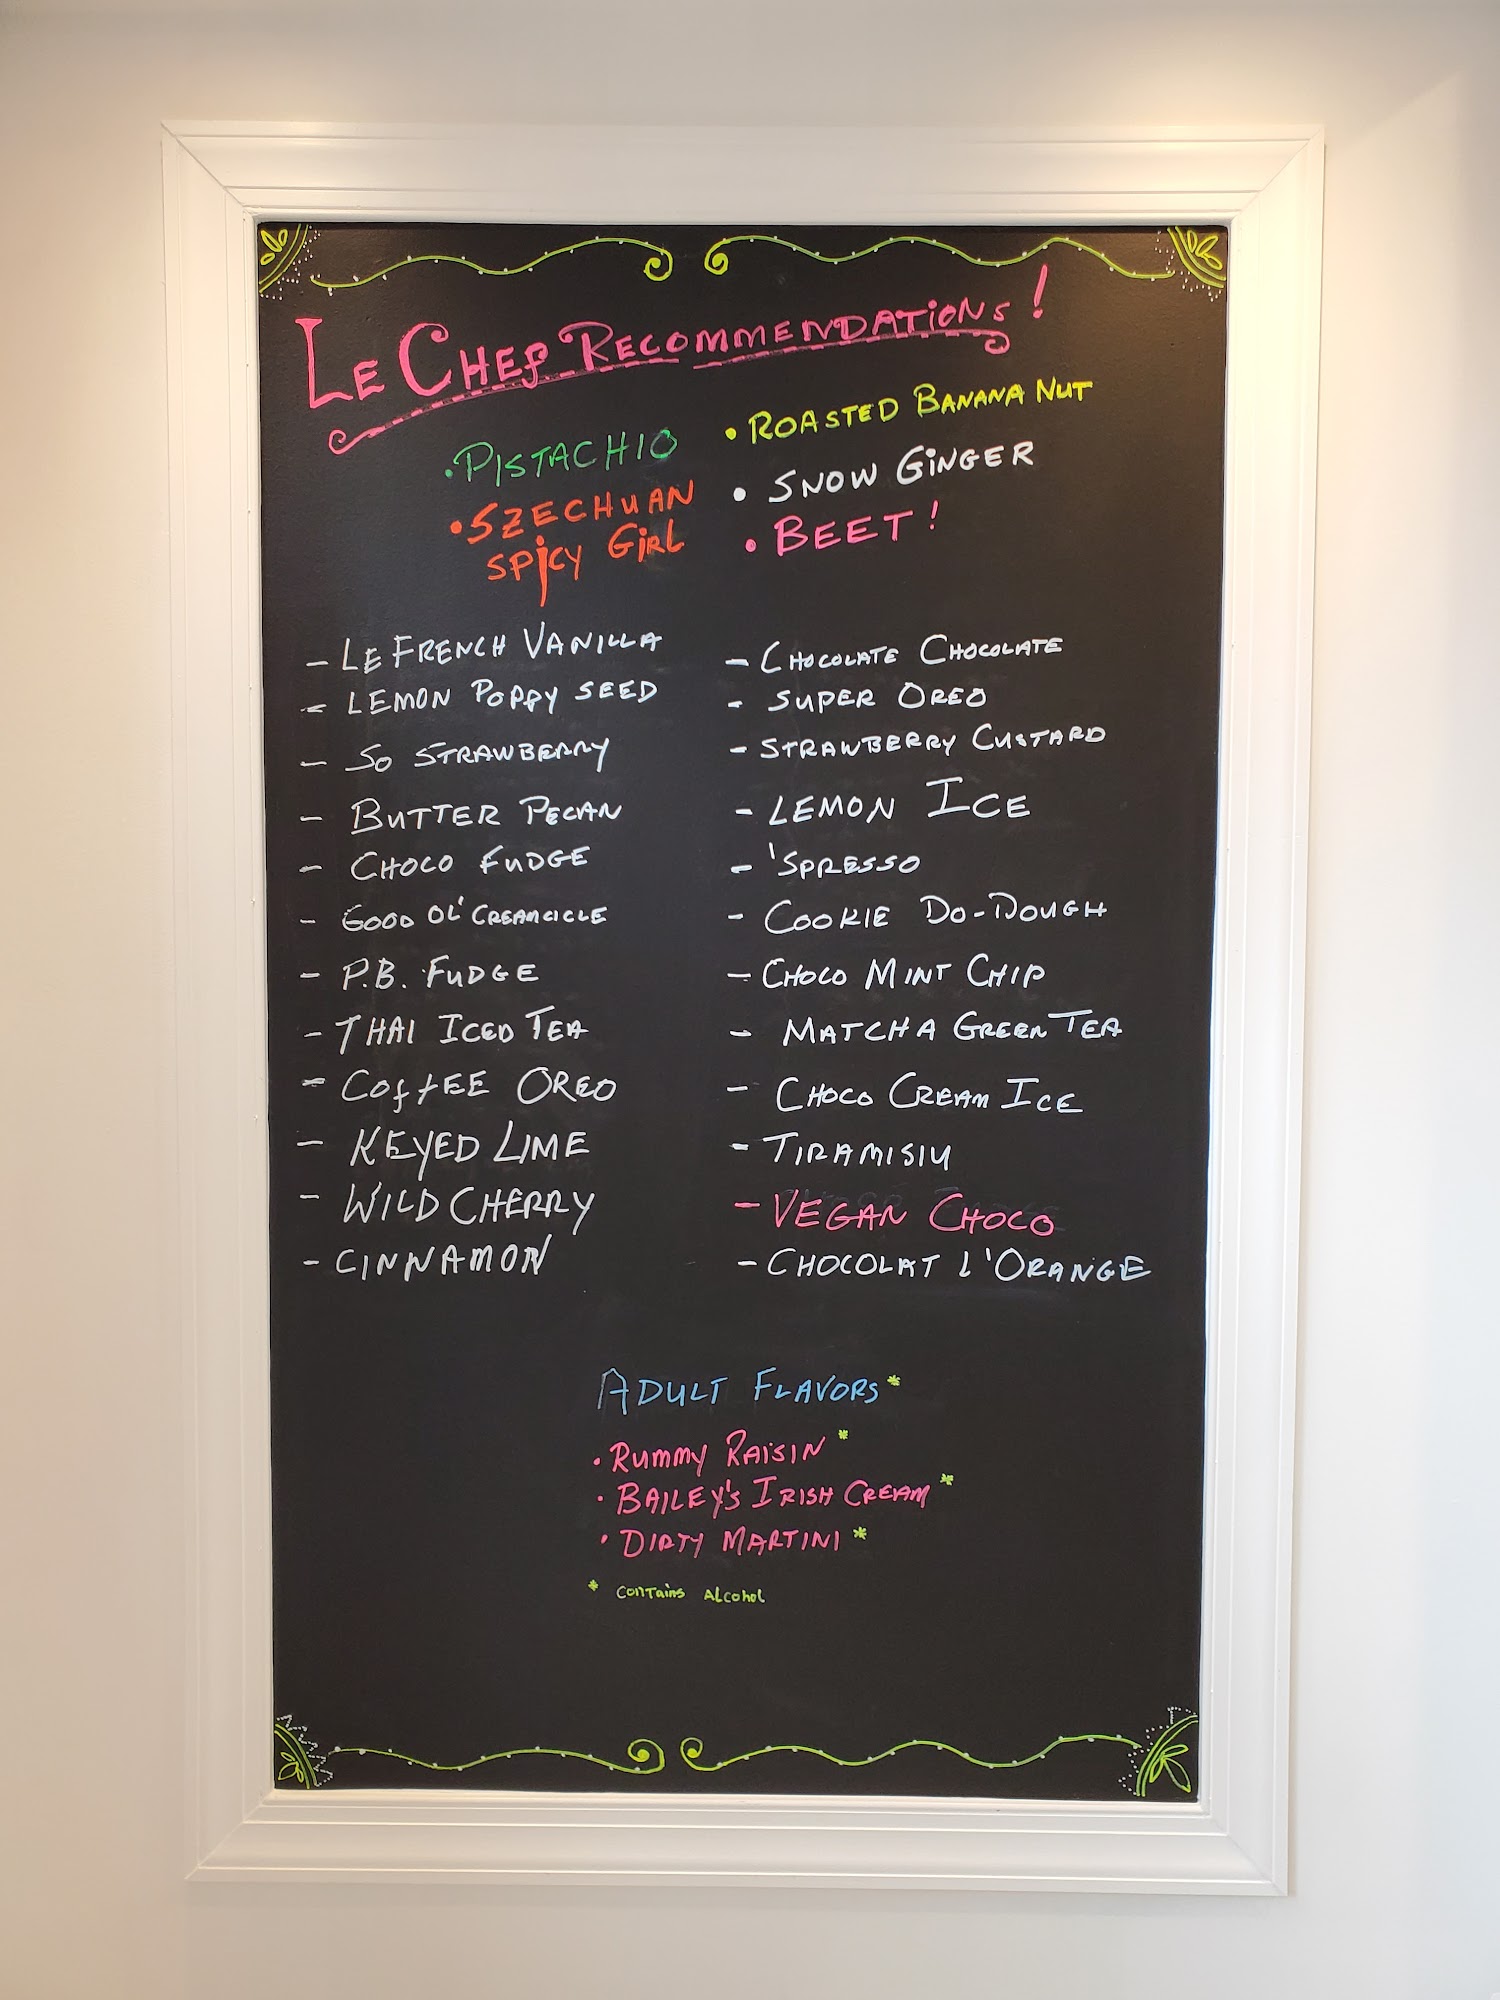 Le Chef Recommendations!
• Pistachio
• Szechuan
Spicy Girl
• Roasted Banana Nut
• Snow Ginger
• Beet!
- Le French Vanilla
- Lemon Poppy Seed
- So Strawberry
- Butter Pecan
- Choco Fudge
- Good Ol' Creamcicle
- P.B. Fudge
- Thai Iced Tea
- Coffee Oreo
- Keyed Lime
- Wild Cherry
- Cinnamon
- Chocolate Chocolate
- Super Oreo
- Strawberry Custard
- Lemon Ice
- 'Spresso
- Cookie Do-Dough
- Choco Mint Chip
- Matcha Green Tea
- Choco Cream Ice
- Tiramisiu
- Vegan Choco
- Chocolat l'Orange
Adult Flavors*
• Rummy Raisin*
• Bailey's Irish Cream*
• Dirty Martini*
* contains alcohol